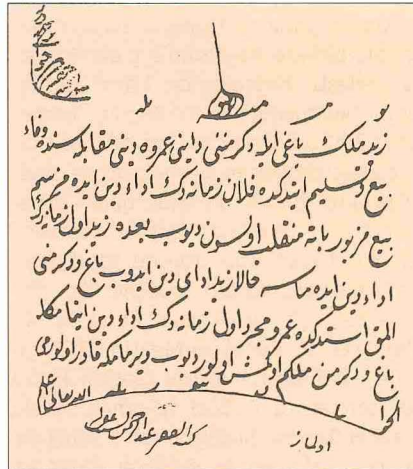 بو مسئله
زيد ملك باغى ايله دكرمننى داينى عمروه دينى مقابله سنده وفاء
بيع و تسليم ايتدكده فلان زمانه دك اداء دين ايده مزسم
بيع مزبور باته منقلب اولسون ديوب بعده زيد اول زمانه دك
اداء دين ايده ماسه حالا زيد اداى دين ايدوب باغ و دكرمنى
المق استدكده عمرو مجرد اول زمانه دك اداء دين ايتمامكله
باغ و دكرمن ملكم اولمش اولور ديوب ويرمامكه قادر اولورمى
الجواب الله تعالى اعلم
اولماز
كتبه الفقير عبد